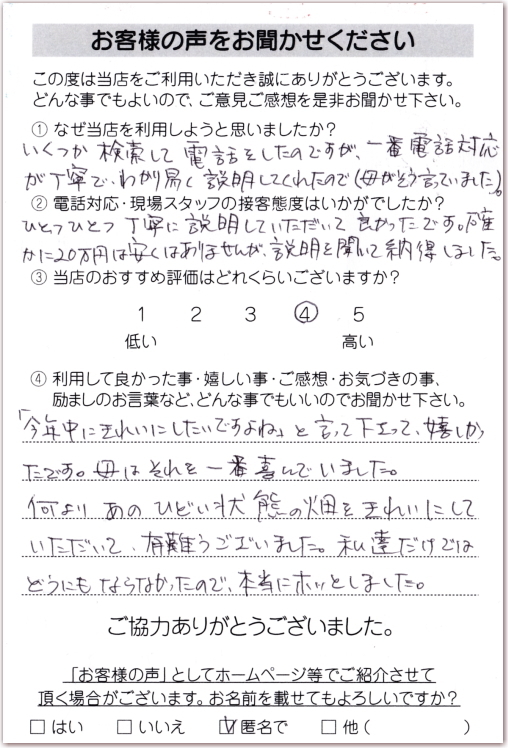 お客様の声をお聞かせください
この度は当店をご利用いただき誠にありがとうございます。
どんな事でもよいので、ご意見ご感想を是非お聞かせ下さい。
① なぜ当店を利用しようと思いましたか?
いくつか検索して電話をしたのですが、一番電話対応
が丁寧で、わかり易く説明してくれたので(母がそう言っていました)。
② 電話対応・現場スタッフの接客態度はいかがでしたか?
ひとつひとつ丁寧に説明していただいて良かったです。確
かに20万円は安くはありませんが、説明を聞いて納得しました。
③ 当店のおすすめ評価はどれくらいございますか?
1 2 3 ④ 5
低い 高い
④ 利用して良かった事・嬉しい事・ご感想・お気づきの事、
励ましのお言葉など、どんな事でもいいのでお聞かせ下さい。
「今年中にきれいにしたいですよね」と言って下さって、嬉しかっ
たです。母はそれを一番喜んでいました。
何よりあのひどい状態の畑をきれいにして
いただいて、有難うございました。私達だけでは
どうにもならなかったので、本当にホッとしました。
ご協力ありがとうございました。
「お客様の声」としてホームページ等でご紹介させて
頂く場合がございます。お名前を載せてもよろしいですか?
□ はい □ いいえ ☑ 匿名で □ 他( )